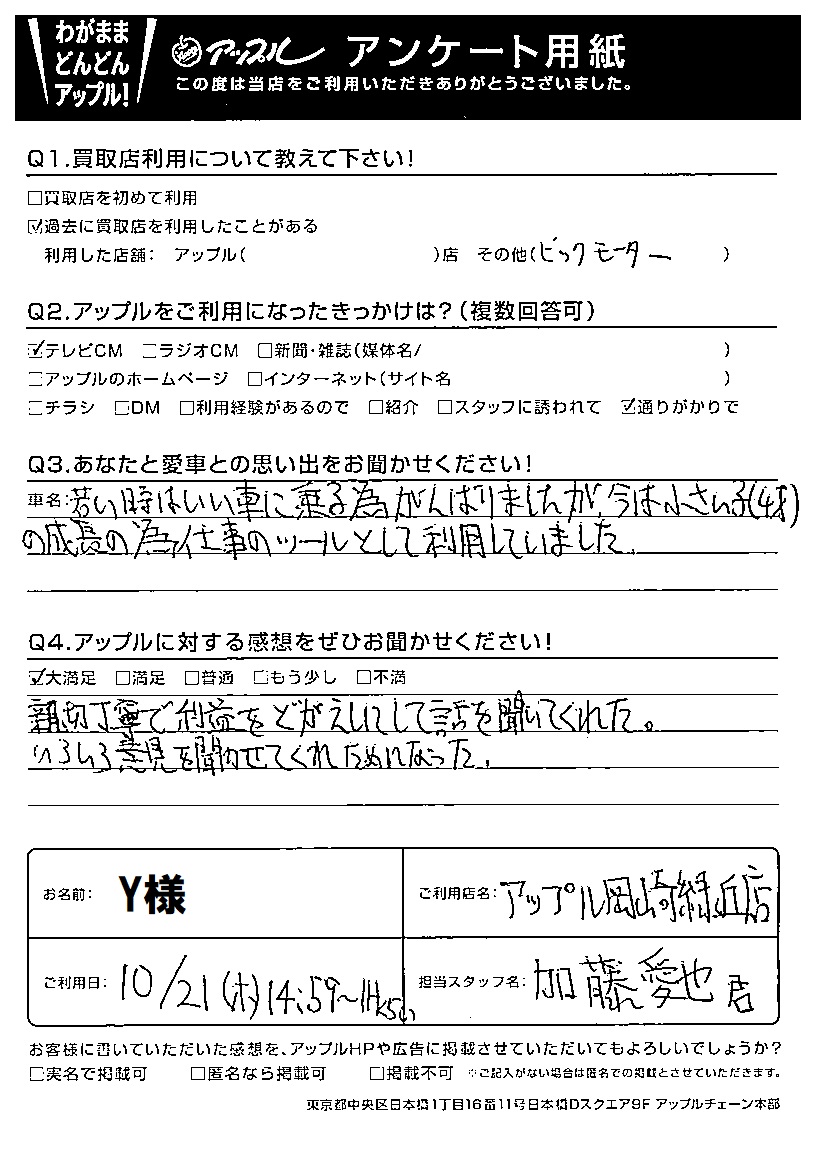 わがまま
どんどん
アップル!
アップル アンケート用紙
この度は当店をご利用いただきありがとうございました。
Q1.買取店利用について教えて下さい!
□買取店を初めて利用
☑過去に買取店を利用したことがある
利用した店舗: アップル( )店 その他(ビックモーター )
Q2.アップルをご利用になったきっかけは?(複数回答可)
☑テレビCM □ラジオCM □新聞・雑誌(媒体名/ )
□アップルのホームページ □インターネット(サイト名 )
□チラシ □DM □利用経験があるので □紹介 □スタッフに誘われて ☑通りがかりで
Q3.あなたと愛車との思い出をお聞かせください!
車名:若い時はいい車に乗る為がんばりましたが、今は小さい子(4才)
の成長の為、仕事のツールとして利用していました。
Q4.アップルに対する感想をぜひお聞かせください!
☑大満足 □満足 □普通 □もう少し □不満
親切丁寧で利益をどがえしにして話を聞いてくれた。
いろいろ意見を聞かせてくれためになった。
お名前: Y様
ご利用店名: アップル岡崎緑丘店
ご利用日: 10/21(木)14:59~
担当スタッフ名: 加藤愛也君
お客様に書いていただいた感想を、アップルHPや広告に掲載させていただいてもよろしいでしょうか?
□実名で掲載可 □匿名なら掲載可 □掲載不可 ※ご記入がない場合は匿名での掲載とさせていただきます。
東京都中央区日本橋1丁目16番11号日本橋Dスクエア9F アップルチェーン本部